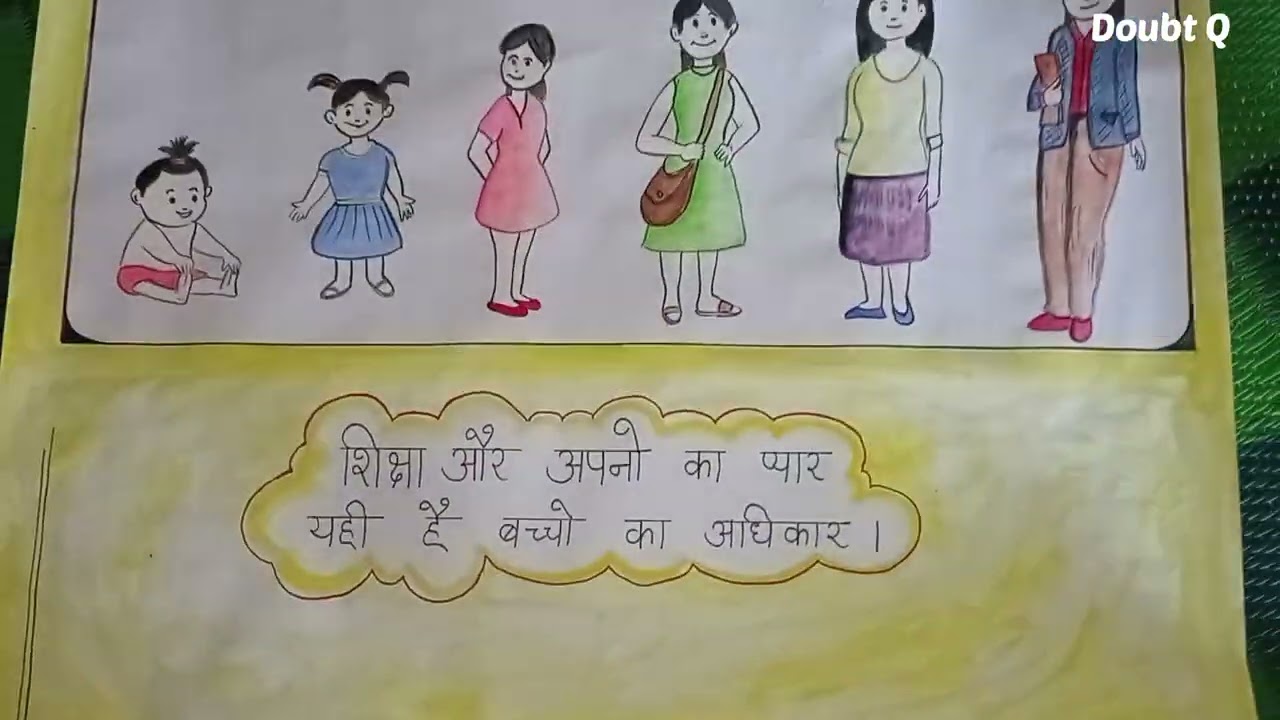 Doubt Q
शिक्षा और अपनो का प्यार
यही है बच्चो का अधिकार ।